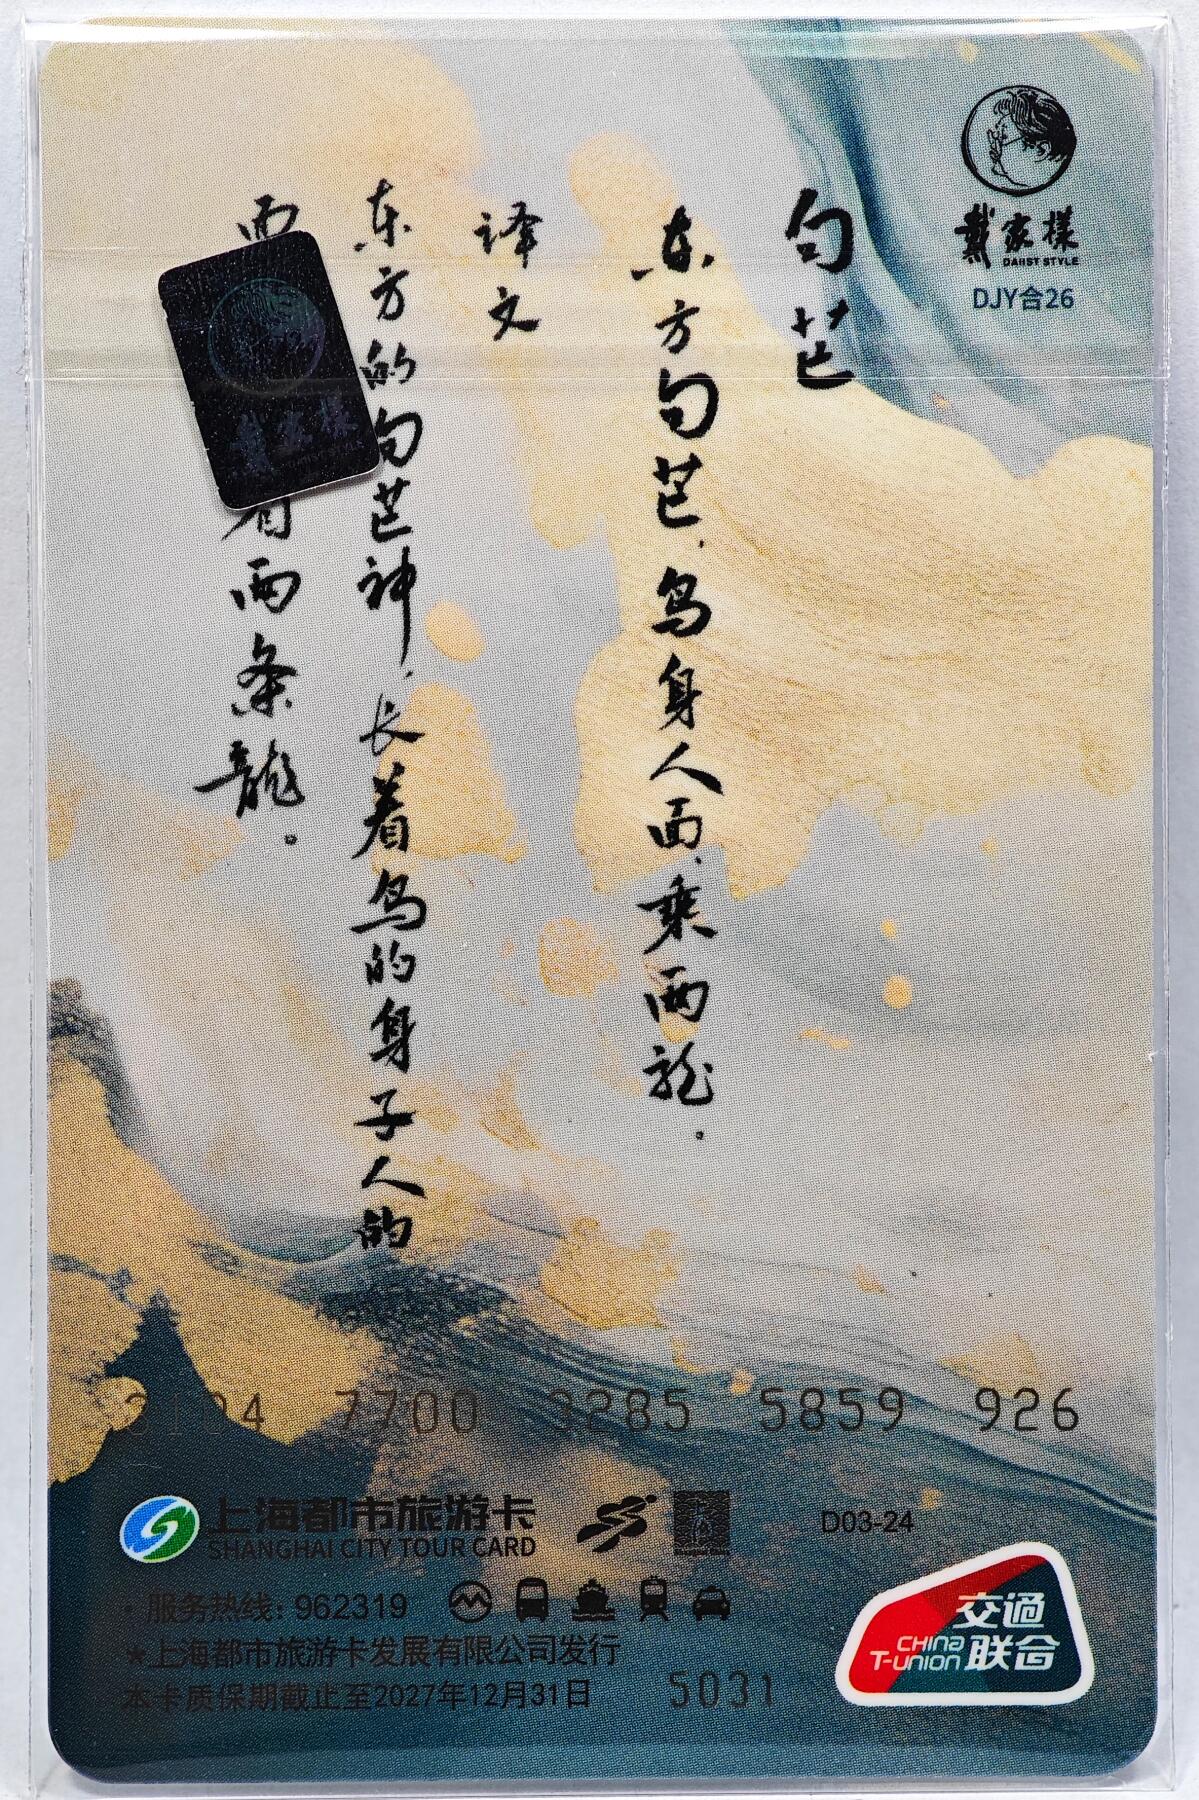 戴家樣
DAIIST STYLE
DJY合26
句芒
东方句芒，鸟身人面，乘两龙。
译文
东方的句芒神，长着鸟的身子人的
着两条龍。
3104 7700 3285 5859 926
上海都市旅游卡
SHANGHAI CITY TOUR CARD
D03-24
服务热线：962319
★上海都市旅游卡发展有限公司发行
本卡质保期截止至2027年12月31日
5031
交通
CHINA
T-UNION 联合
戴家樣